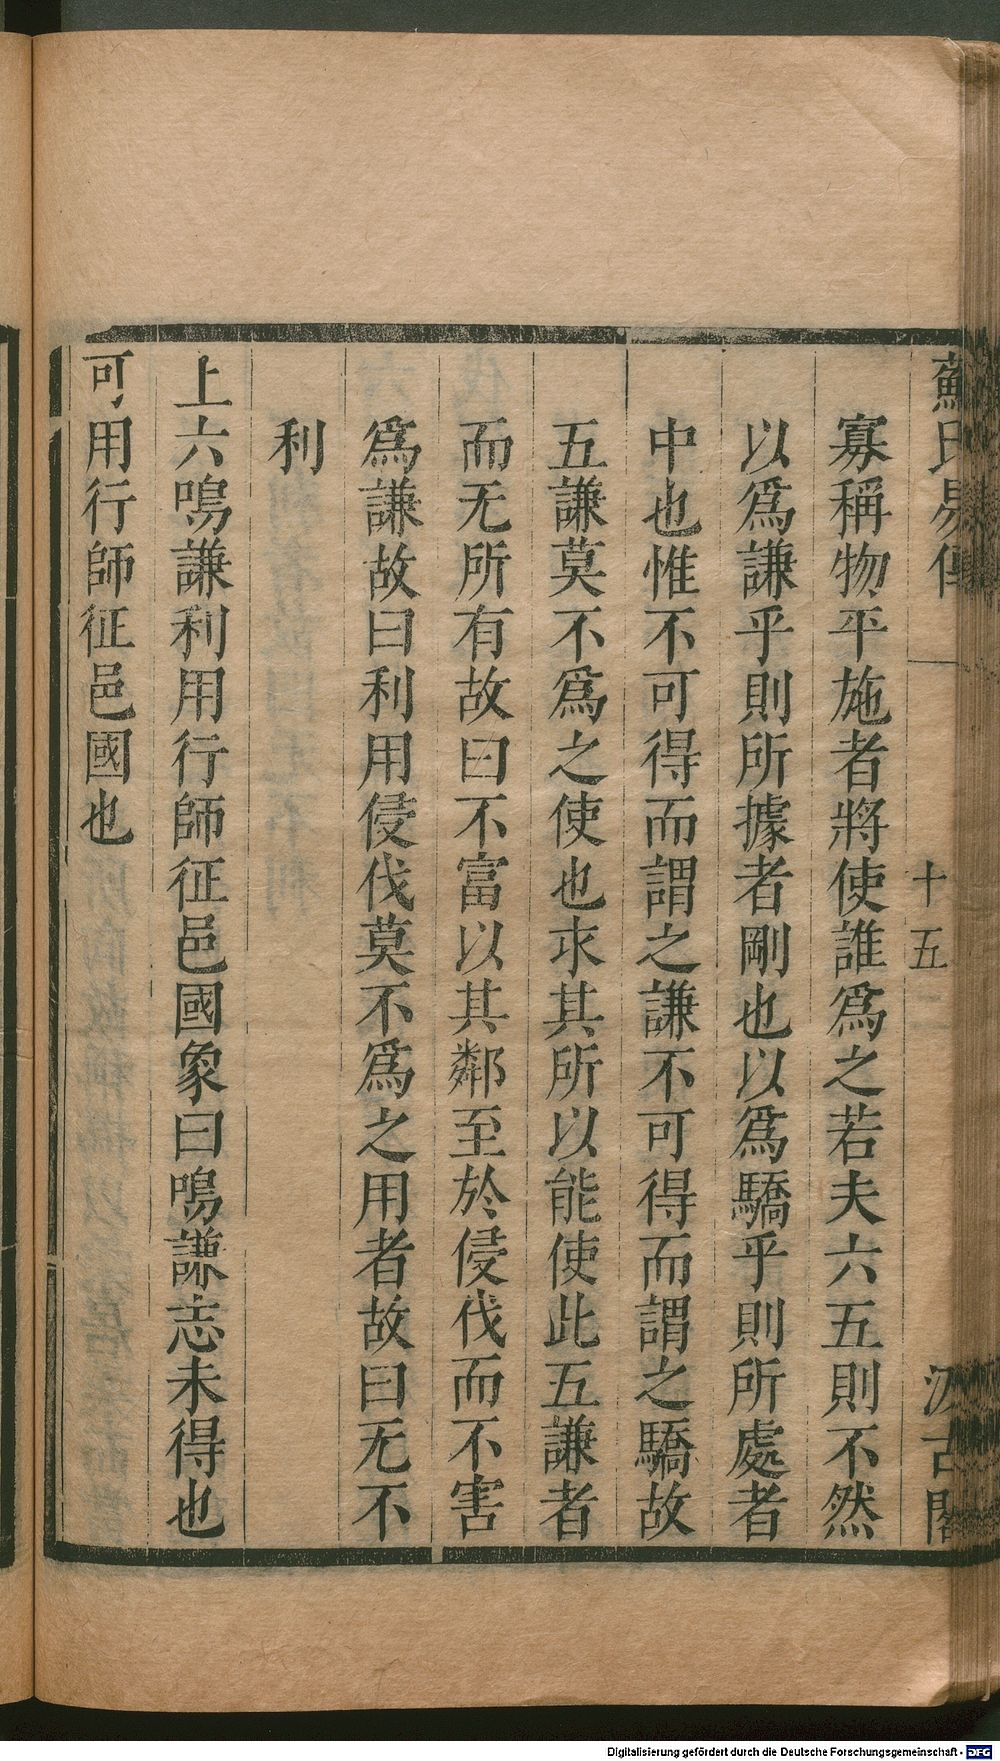 蘇氏易傳 十五 汲古閣
寡稱物平施者將使誰爲之若夫六五則不然
以爲謙乎則所據者剛也以爲驕乎則所處者
中也惟不可得而謂之謙不可得而謂之驕故
五謙莫不爲之使也求其所以能使此五謙者
而无所有故曰不富以其鄰至於侵伐而不害
爲謙故曰利用侵伐莫不爲之用者故曰无不
利
上六鳴謙利用行師征邑國象曰鳴謙志未得也
可用行師征邑國也
Digitalisierung gefördert durch die Deutsche Forschungsgemeinschaft - DFG